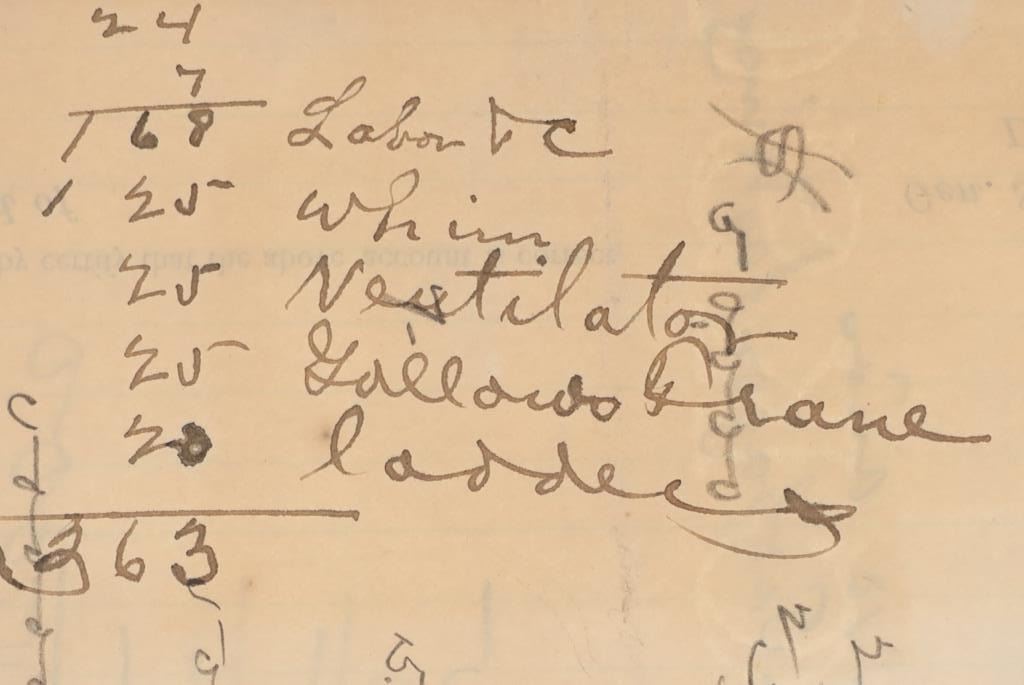 24
7
168 Labor & C
125 Whim
25 Ventilator
25 Gallows & Crane
20 ladders
363